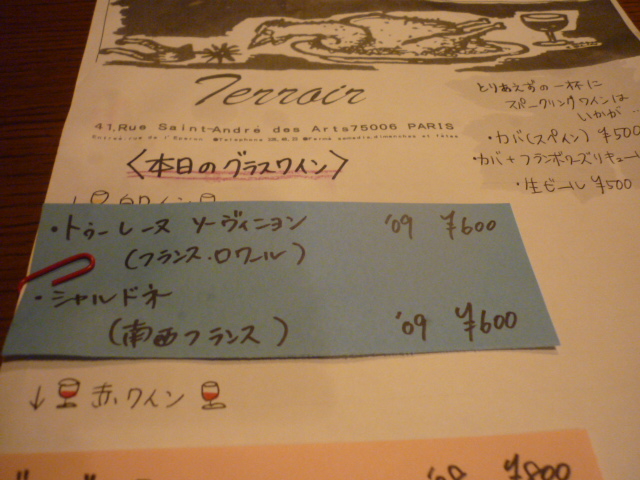 Terroir
41,Rue Saint-André des Arts75006 PARIS
とりあえずの一杯に
スパークリングワインは
いかが…
・カバ(スペイン) ¥500
・カバ+フランボワーズリキュール
・生ビール ¥500
〈本日のグラスワイン〉
↓ 白ワイン
・トゥーレーヌ ソーヴィニヨン '09 ¥600
(フランス・ロワール)
・シャルドネ
(南西フランス) '09 ¥600
↓ 赤ワイン
'08 ¥800